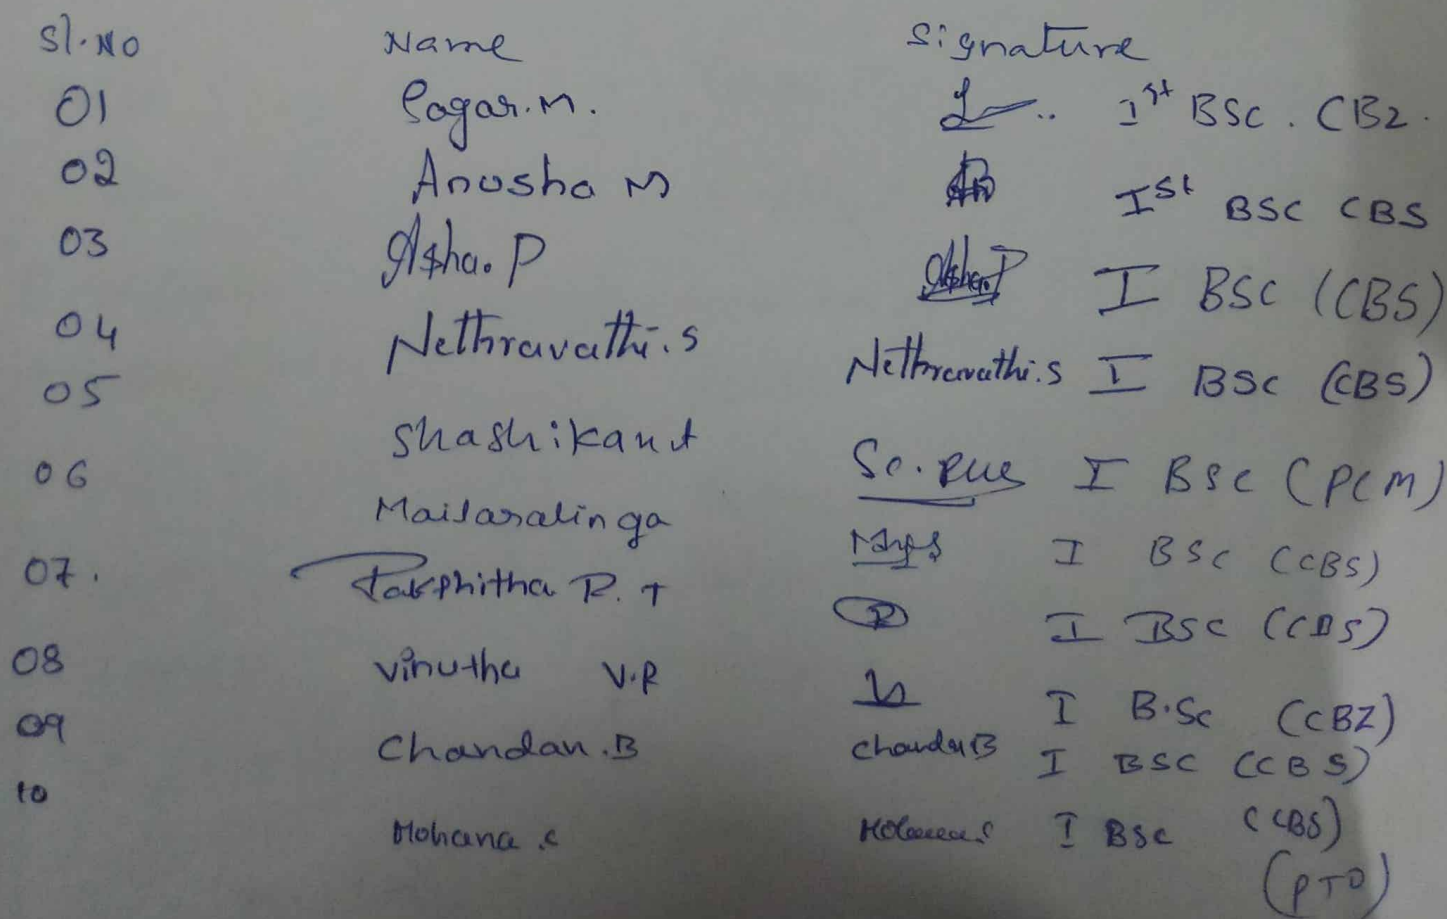 Sl.No Name Signature
01 Sagar.M. Ist BSc. CBZ.
02 Anusha M Ist BSC CBS
03 Asha.P Asha.P I BSC (CBS)
04 Nethravathi.S Nethravathi.S I BSc (CBS)
05 Shashikant I BSc (PCM)
06 Mailaralinga I BSc (CBS)
07. R.T I BSc (CBS)
08 Vinutha V.R I B.Sc (CBZ)
09 Chandan.B Chandan B I BSC (CBS)
10 Mohana.S Mohana.S I BSc (CBS)
(PTO)